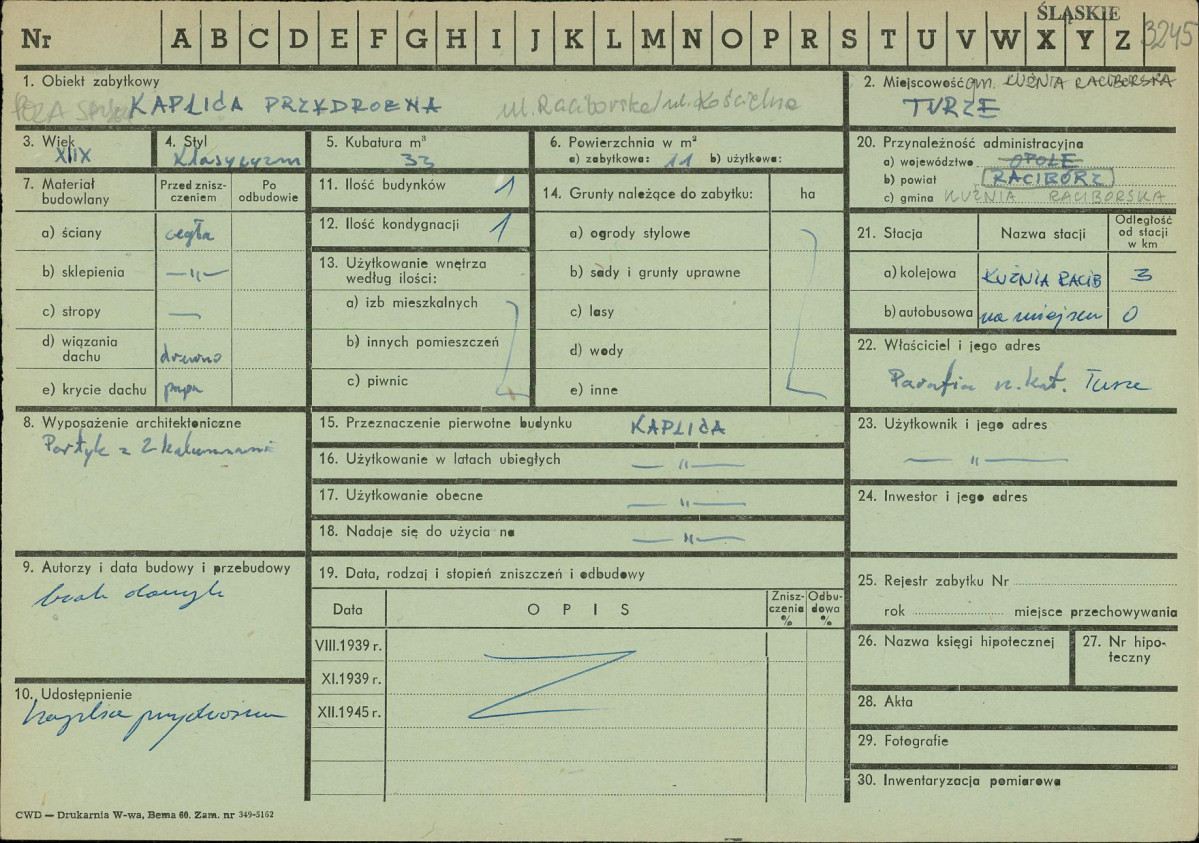 ŚLĄSKIE
Nr A B C D E F G H I J K L M N O P R S T U V W X Y Z 3245
1. Obiekt zabytkowy
KAPLICA PRZYDROŻNA ul. Raciborska/ul. Kościelna
2. Miejscowość gm. KUŹNIA RACIBORSKA
TURZE
3. Wiek
XIX
4. Styl
Klasycyzm
5. Kubatura m³
33
6. Powierzchnia w m²
a) zabytkowa: 11 b) użytkowa:
20. Przynależność administracyjna
a) województwo OPOLE
b) powiat RACIBÓRZ
c) gmina KUŹNIA RACIBORSKA
7. Materiał budowlany
Przed zniszczeniem
Po odbudowie
a) ściany cegła
b) sklepienia —„—
c) stropy —
d) wiązania dachu drewno
e) krycie dachu papa
11. Ilość budynków 1
12. Ilość kondygnacji 1
13. Użytkowanie wnętrza
według ilości:
a) izb mieszkalnych
b) innych pomieszczeń
c) piwnic
14. Grunty należące do zabytku: ha
a) ogrody stylowe
b) sady i grunty uprawne
c) lasy
d) wody
e) inne
21. Stacja Nazwa stacji Odległość od stacji w km
a) kolejowa KUŹNIA RACIB 3
b) autobusowa na miejscu 0
22. Właściciel i jego adres
Parafia rz. kat. Turze
8. Wyposażenie architektoniczne
Portyk z 2 kolumnami
15. Przeznaczenie pierwotne budynku KAPLICA
16. Użytkowanie w latach ubiegłych —„—
17. Użytkowanie obecne —„—
18. Nadaje się do użycia na —„—
23. Użytkownik i jego adres
—„—
24. Inwestor i jego adres
9. Autorzy i data budowy i przebudowy
brak danych
19. Data, rodzaj i stopień zniszczeń i odbudowy
Data OPIS Zniszczenia % Odbudowa %
VIII.1939 r.
XI.1939 r.
XII.1945 r.
25. Rejestr zabytku Nr
rok miejsce przechowywania
26. Nazwa księgi hipotecznej
27. Nr hipoteczny
10. Udostępnienie
kaplica przydrożna
28. Akta
29. Fotografie
30. Inwentaryzacja pomiarowa
CWD — Drukarnia W-wa, Bema 60. Zam. nr 349-5162